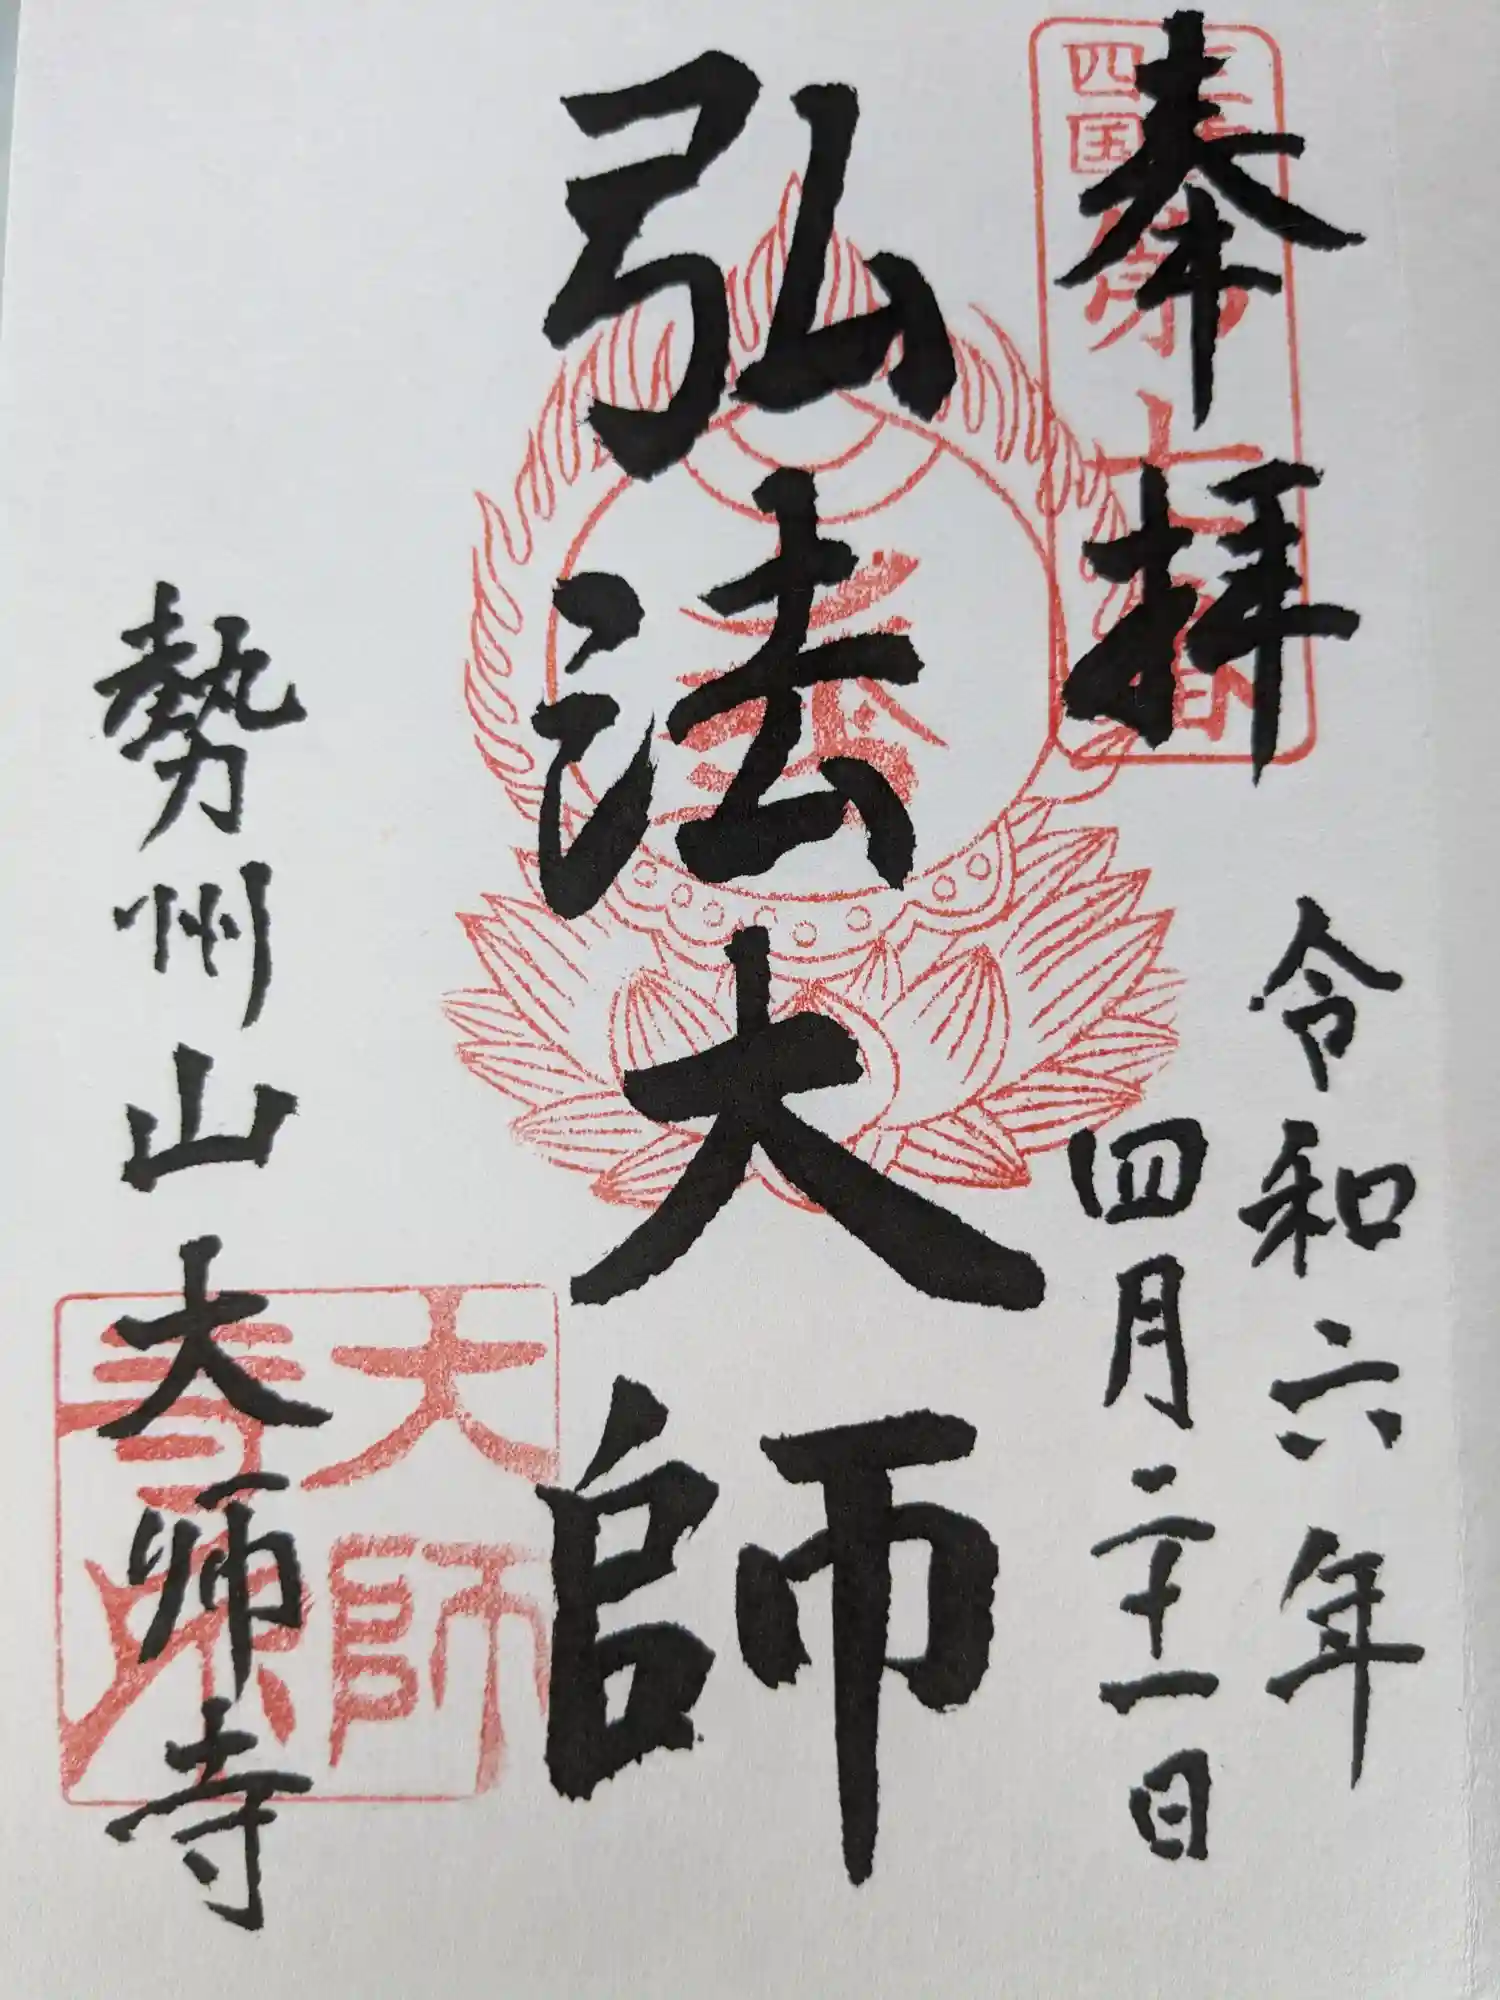 奉拝
令和六年
四月二十一日
弘法大師
勢州山大師寺
四国
第
番
大師